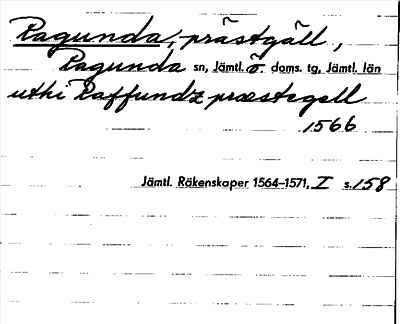 Ragunda, prästgäll,
Ragunda sn, Jämtl. ö. doms. tg, Jämtl. län
uthi Raffundz præstegell
1566
Jämtl. Räkenskaper 1564–1571, I s. 158